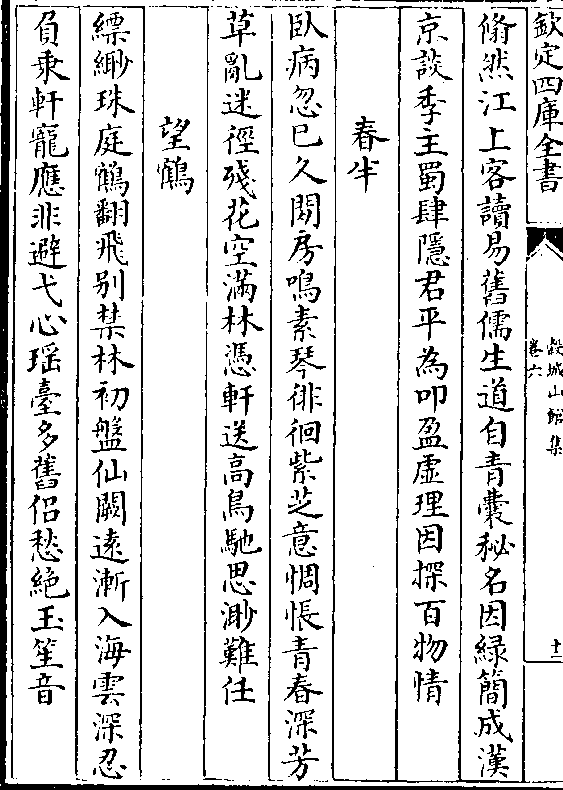 欽定四庫全書
穀城山館集
卷六
十二
翛然江上客讀易舊儒生道自青囊秘名因緑簡成漢
京談季主蜀肆隱君平為叩盈虚理因探百物情
春半
臥病忽已久閒房鳴素琴徘徊紫芝意惆悵青春深芳
草亂迷徑殘花空滿林憑軒送高鳥馳思渺難任
望鶴
縹緲珠庭鶴翻飛别禁林初盤仙闕遠漸入海雲深忍
負乘軒寵應非避弋心瑶臺多舊侣愁絶玉笙音